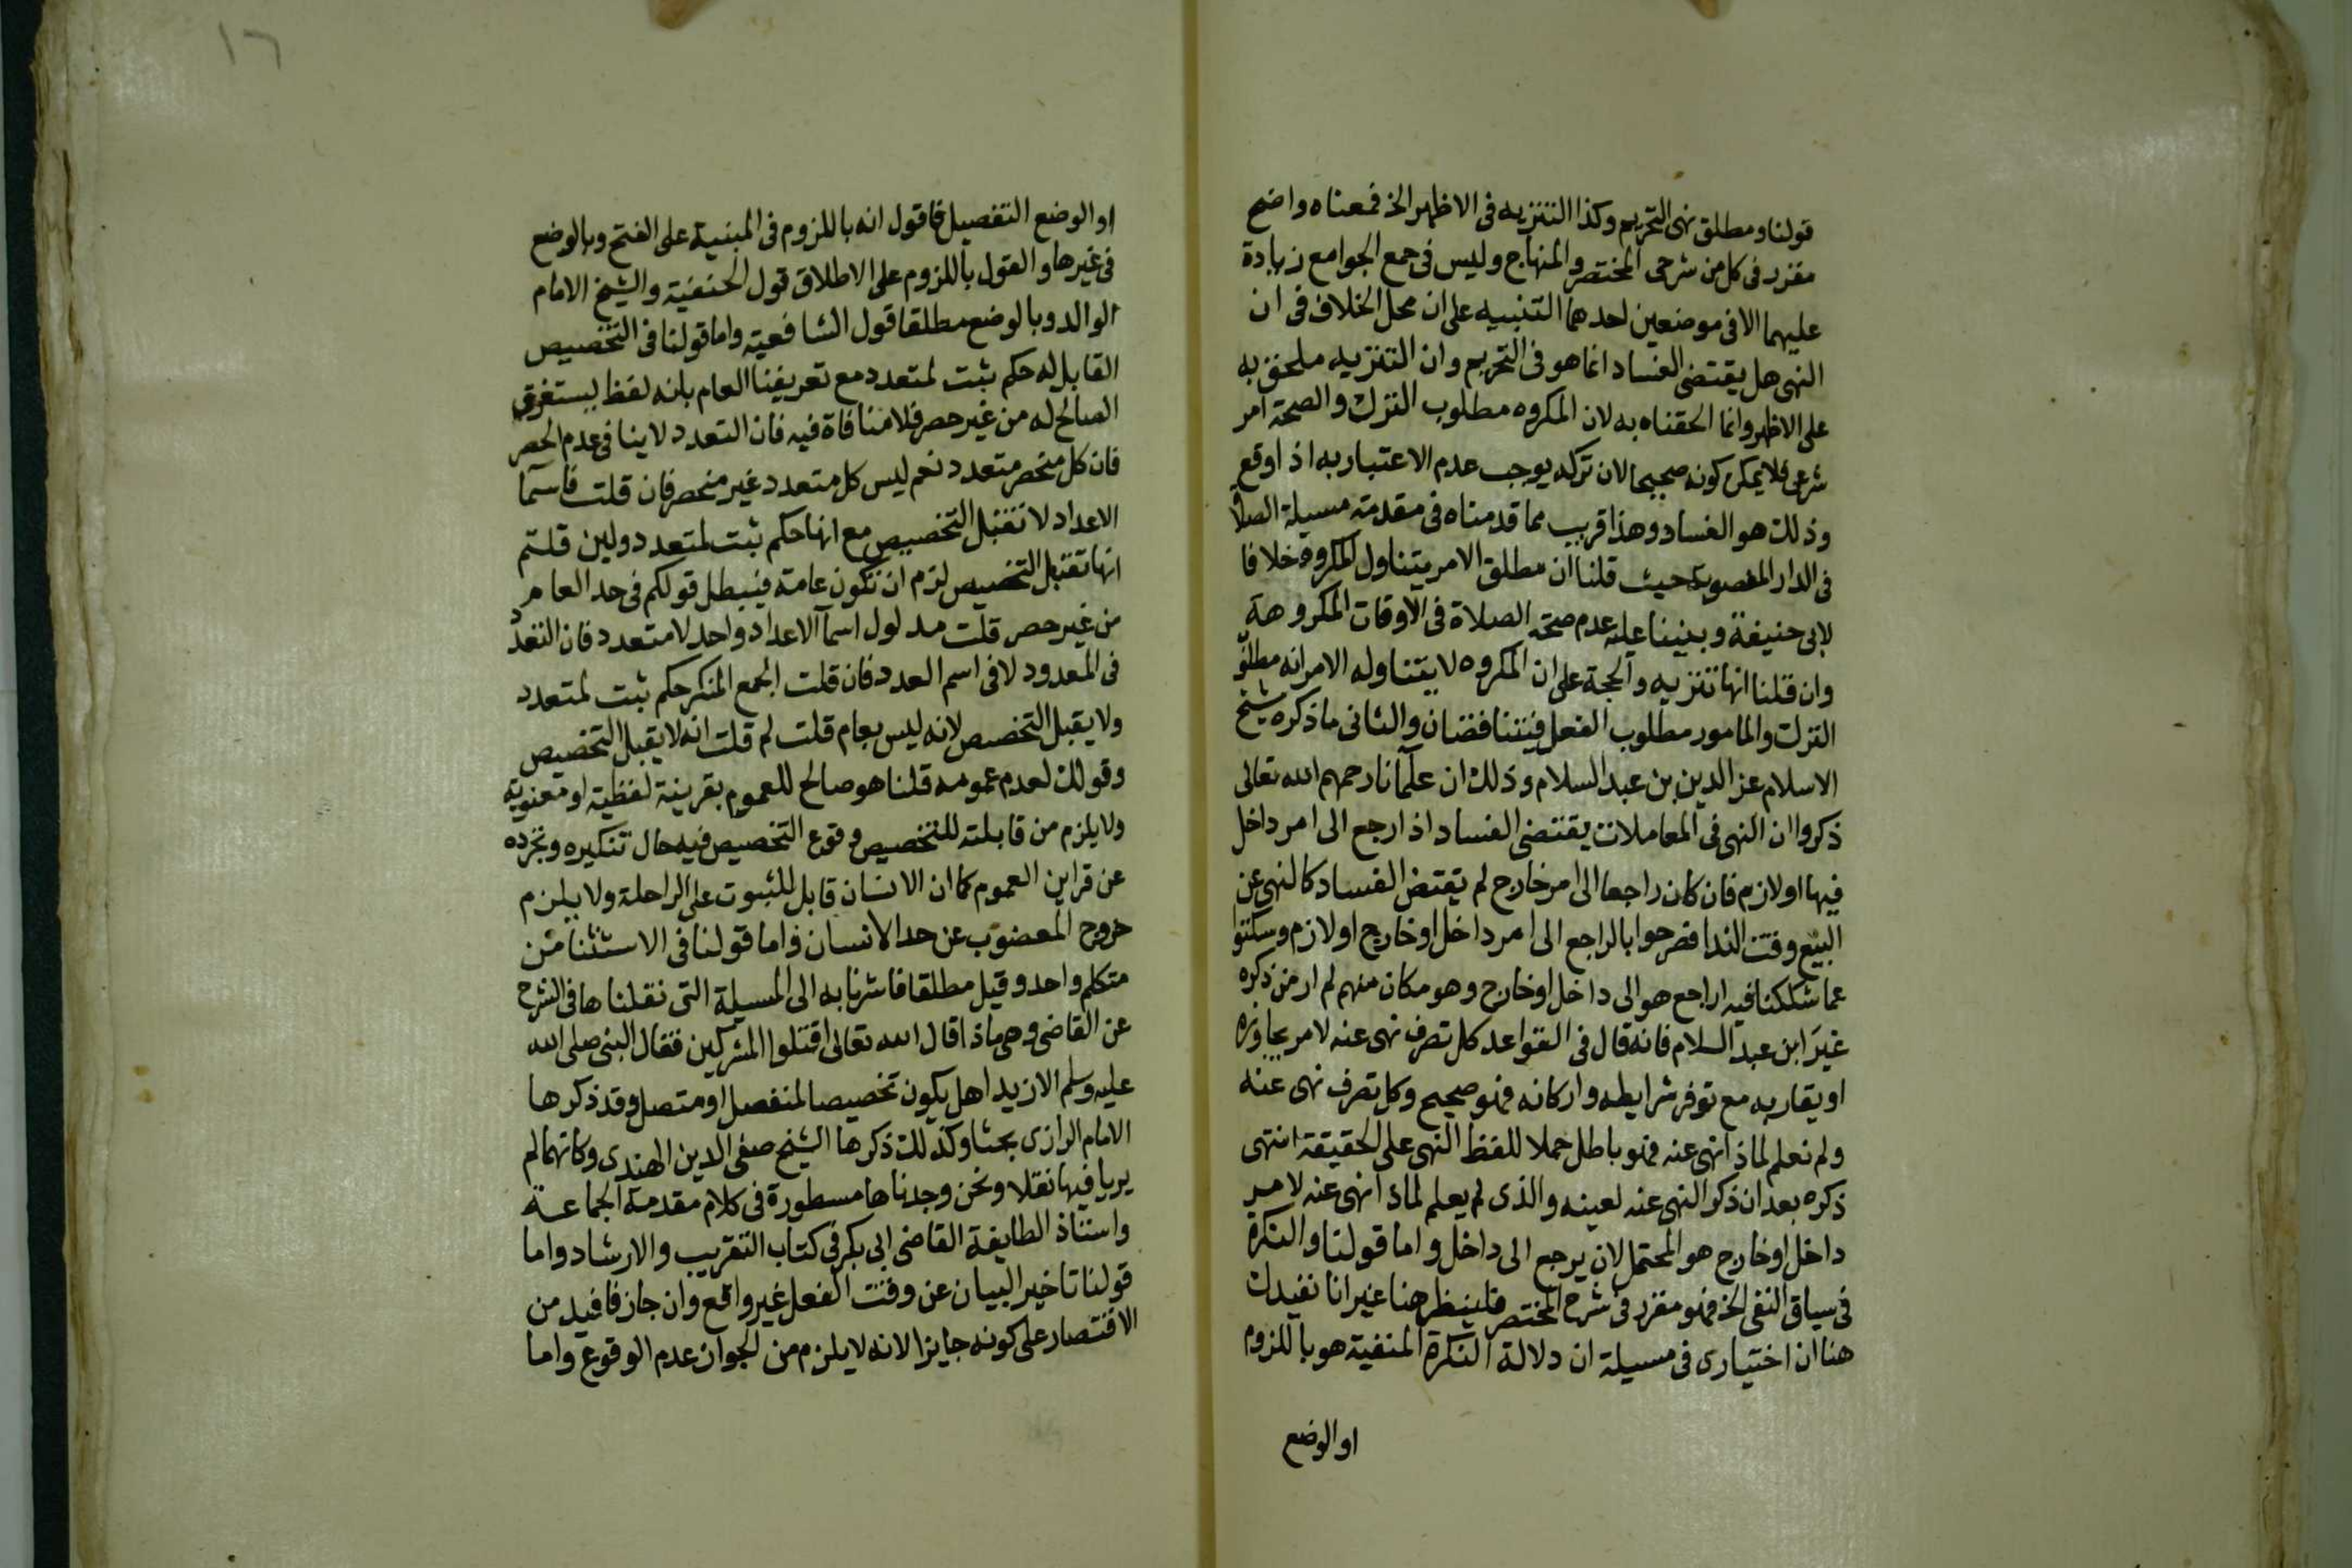 قولنا ومطلق نهى التحريم وكذا التنزيه فى الاظهر الخ فمعناه واضح
مقرر فى كل من شرحى المختصر والمنهاج وليس فى جمع الجوامع زيادة
عليهما الا فى موضعين احدهما التنبيه على ان محل الخلاف فى ان
النهى هل يقتضى الفساد انما هو فى التحريم وان التنزيه ملحق به
على الاظهر وانما الحقناه به لان المكروه مطلوب الترك والصحة امر
شرعى فلا يمكن كونه صحيحا لان تركه يوجب عدم الاعتبار به اذا وقع
وذلك هو الفساد وهذا قريب مما قدمناه فى مقدمته مسيلة الصلاة
فى الدار المغصوبة حيث قلنا ان مطلق الامر يتناول المكروه خلافا
لابى حنيفة وبنينا عليه عدم صحة الصلاة فى الاوقات المكروهة
وان قلنا انها تنزيه والحجة على ان المكروه لا يتناوله الامر انه مطلوب
الترك والمامور مطلوب الفعل فيتنافضان والثانى ما ذكره شيخ
الاسلام عز الدين بن عبد السلام وذلك ان علمآنا رحمهم الله تعالى
ذكروا ان النهى فى المعاملات يقتضى الفساد اذا رجع الى امر داخل
فيها او لازم فان كان راجعا الى امر خارج لم يقتض الفساد كالنهى عن
البيع وقت الندا فصرحوا بالراجع الى امر داخل او خارج او لازم وسكتوا
عما شككنا فيه اراجع هو الى داخل او خارج وهو مكان مبهم لم ار من ذكره
غير ابن عبد السلام فانه قال فى القواعد كل تصرف نهى عنه لامر يجاوزه
او يقاربه مع توفر شرايطه واركانه فهو صحيح وكل تصرف نهى عنه
ولم نعلم لماذا نهى عنه فهو باطل حملا للفظ النهى على الحقيقة انتهى
ذكره بعد ان ذكر النهى عنه لعينه والذى لم يعلم لماذا نهى عنه لامر
داخل او خارج هو المحتمل لان يرجع الى داخل واما قولنا والنكرة
فى سياق النفى الخ فهو مقرر فى شرح المختصر فلينظر هنا غير انا نفيدك
هنا ان اختيارى فى مسيلة ان دلالة النكرة المنفية هو باللزوم
او الوضع
١٦
او الوضع التفصيل فاقول انه باللزوم فى المبنية على الفتح وبالوضع
فى غيرها والقول باللزوم على الاطلاق قول الحنفية والشيخ الامام
الوالد وبالوضع مطلقا قول الشافعية واما قولنا فى التخصيص
القابل له حكم ثبت لمتعدد مع تعريفنا العام بانه لفظ يستغرق
الصالح له من غير حصر فلا منافاة فيه فان التعدد لا ينافى عدم الحصر
فان كل منحصر متعدد نعم ليس كل متعدد غير منحصر فان قلت فاسمآ
الاعداد لا تقبل التخصيص مع انها حكم ثبت لمتعدد ولين قلتم
انها تقبل التخصيص لزم ان تكون عامة فيبطل قولكم فى حد العام
من غير حصر قلت مدلول اسمآ الاعداد واحد لا متعدد فان التعدد
فى المعدود لا فى اسم العدد فان قلت الجمع المنكر حكم ثبت لمتعدد
ولا يقبل التخصيص لانه ليس بعام قلت لم قلت انه لا يقبل التخصيص
وقولك لعدم عمومه قلنا هو صالح للعموم بقرينة لفظية او معنوية
ولا يلزم من قابليته للتخصيص وقوع التخصيص فيه حال تنكيره وتجرده
عن قراين العموم كما ان الانسان قابل للثبوت على الراحلة ولا يلزم
خروج المعضوب عن حد الانسان واما قولنا فى الاستثنا من
متكلم واحد وقيل مطلقا فاشرنا به الى المسيلة التى نقلناها فى الشرح
عن القاضى وهى ماذا قال الله تعالى اقتلوا المشركين فقال النبى صلى الله
عليه وسلم الا زيدا هل يكون تخصيصا لمنفصل او متصل وقد ذكرها
الامام الرازى بحثا وكذلك ذكرها الشيخ صفى الدين الهندى وكانهما لم
يريا فيها نقلا ونحن وجدناها مسطورة فى كلام مقدمة الجماعة
واستاذ الطايفة القاضى ابى بكر فى كتاب التقريب والارشاد واما
قولنا تاخير البيان عن وقت الفعل غير واقع وان جاز فافيد من
الاقتصار على كونه جايزا لانه لا يلزم من الجواز عدم الوقوع واما